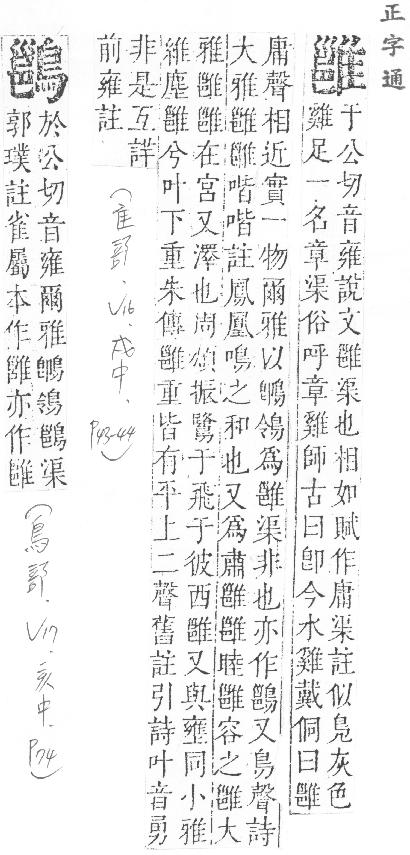 正字通
雝
于公切音雍說文雝渠也相如賦作庸渠註似鳧灰色
雞足一名章渠俗呼章雞師古曰卽今水雞戴侗曰雝
庸聲相近實一物爾雅以鵰鴒為雝渠非也亦作鷛又鳥聲詩
大雅雝雝喈喈註鳳凰鳴之和也又為肅雝雝睦雝容之雝大
雅雝雝在宮又澤也周頌振鷺于飛于彼西雝又與壅同小雅
維塵雝兮叶下重朱傳雝重皆有平上二聲舊註引詩叶音勇
非是互詳
前雍註
(隹部.V16.戌中.
P43-44)
鷛
於公切音雍爾雅䳭鴒鷛渠
郭璞註雀屬本作雝亦作雝
(鳥部.V17.亥中.
P74)